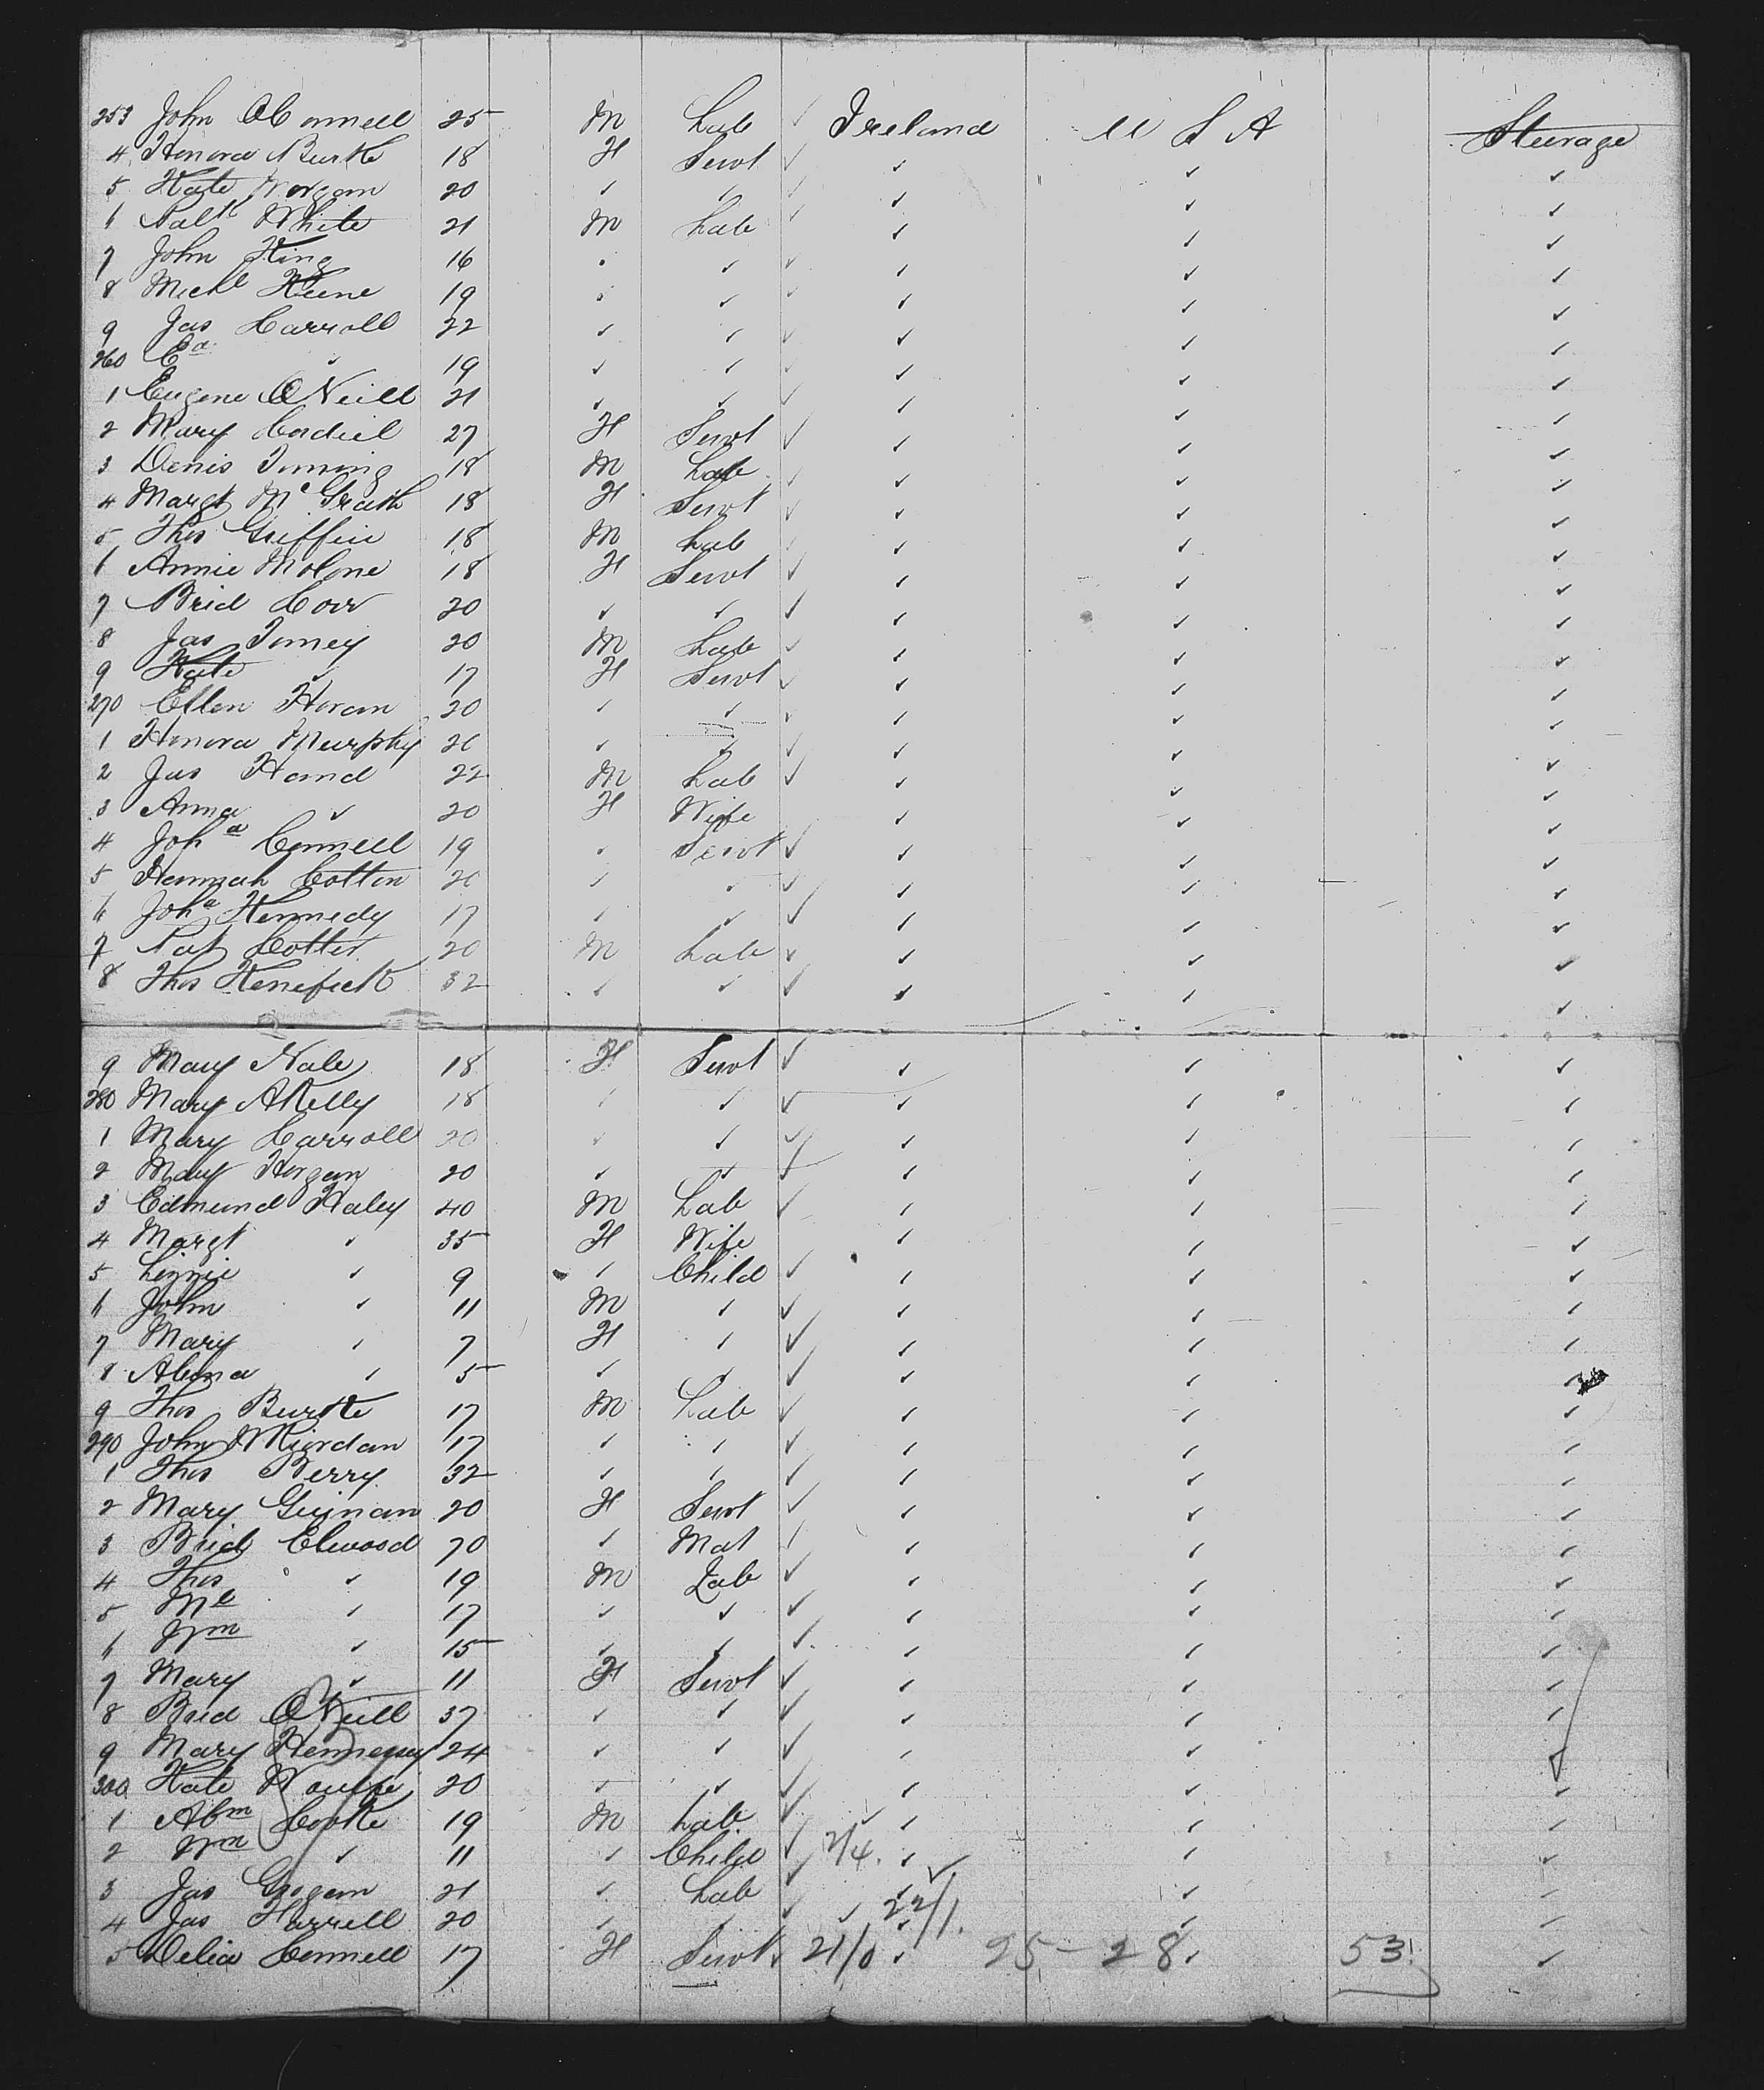 253 John OConnell 25 M Lab ✓ Ireland U S A Steerage
4 Honora Burke 18 F Servt ✓ ✓ ✓ ✓
5 Kate Morgan 20 ✓ ✓ ✓ ✓ ✓ ✓
6 Patk White 21 M Lab ✓ ✓ ✓ ✓
7 John King 16 ✓ ✓ ✓ ✓ ✓ ✓
8 Michl Keene 19 ✓ ✓ ✓ ✓ ✓ ✓
9 Jas Carroll 22 ✓ ✓ ✓ ✓ ✓ ✓
260 Ed ✓ 19 ✓ ✓ ✓ ✓ ✓ ✓
1 Eugene ONeill 21 ✓ ✓ ✓ ✓ ✓ ✓
2 Mary 27 F Servt ✓ ✓ ✓ ✓
3 Denis 18 M Lab ✓ ✓ ✓ ✓
4 Margt McGrath 18 F Servt ✓ ✓ ✓ ✓
5 Thos Griffin 18 M Lab ✓ ✓ ✓ ✓
6 Annie Molone 18 F Servt ✓ ✓ ✓ ✓
7 Brid Corr 20 ✓ ✓ ✓ ✓ ✓ ✓
8 Jas 20 M Lab ✓ ✓ ✓ ✓
9 Kate ✓ 17 F Servt ✓ ✓ ✓ ✓
270 Ellen Horan 20 ✓ ✓ ✓ ✓ ✓ ✓
1 Honora Murphy ✓ ✓ ✓ ✓ ✓ ✓
2 Jas Hand 22 M Lab ✓ ✓ ✓ ✓
3 Anna ✓ 20 F Wife ✓ ✓ ✓
4 Joha Connell 19 ✓ Servt ✓ ✓ ✓ ✓
5 Hannah Cotton ✓ ✓ ✓ ✓ ✓ ✓
6 Joha Kennedy 17 ✓ ✓ ✓ ✓ ✓ ✓
7 Pat Cotter 20 M Lab ✓ ✓ ✓ ✓
8 Thos Kenefick 32 ✓ ✓ ✓ ✓ ✓ ✓
9 Mary 18 F Servt ✓ ✓ ✓ ✓
280 Mary A Kelly 18 ✓ ✓ ✓ ✓ ✓ ✓
1 Mary Carroll 20 ✓ ✓ ✓ ✓ ✓ ✓
2 Mary Horgan 20 ✓ ✓ ✓ ✓ ✓ ✓
3 Edmund Haley 40 M Lab ✓ ✓ ✓ ✓
4 Margt ✓ 35 F Wife ✓ ✓ ✓
5 Lizzie ✓ 9 ✓ Child ✓ ✓ ✓ ✓
6 John ✓ 11 M ✓ ✓ ✓ ✓ ✓
7 Mary ✓ 7 F ✓ ✓ ✓ ✓ ✓
8 Abina ✓ 5 ✓ ✓ ✓ ✓ ✓ ✓
9 Thos Burke 17 M Lab ✓ ✓ ✓ ✓
290 John Riordan 17 ✓ ✓ ✓ ✓ ✓ ✓
1 Thos Berry 32 ✓ ✓ ✓ ✓ ✓ ✓
2 Mary Guinan 20 F Servt ✓ ✓ ✓ ✓
3 Brid Elwood 70 ✓ Mat ✓ ✓ ✓ ✓
4 Thos ✓ 19 M Lab ✓ ✓ ✓ ✓
5 Ml ✓ 17 ✓ ✓ ✓ ✓ ✓ ✓
6 Wm ✓ 15 ✓ ✓ ✓ ✓ ✓ ✓
7 Mary ✓ 11 F Servt ✓ ✓ ✓ ✓
8 Brid ONeill 37 ✓ ✓ ✓ ✓ ✓ ✓
9 Mary Hennessy 24 ✓ ✓ ✓ ✓ ✓
300 Kate Woulfe 20 ✓ ✓ ✓ ✓ ✓ ✓
1 Abm Cooke 19 M Lab ✓ ✓ ✓ ✓
2 Wm ✓ 11 ✓ Child ✓ 2/4. ✓ ✓ ✓
3 Jas Grogan 21 ✓ Lab ✓ ✓ ✓ ✓
4 Jas Farrell 20 ✓ ✓ ✓ 22/1. ✓ ✓
5 Delia Connell 17 F Servt ✓ 21/0 ✓ 25 - 28 ✓ 53 ✓